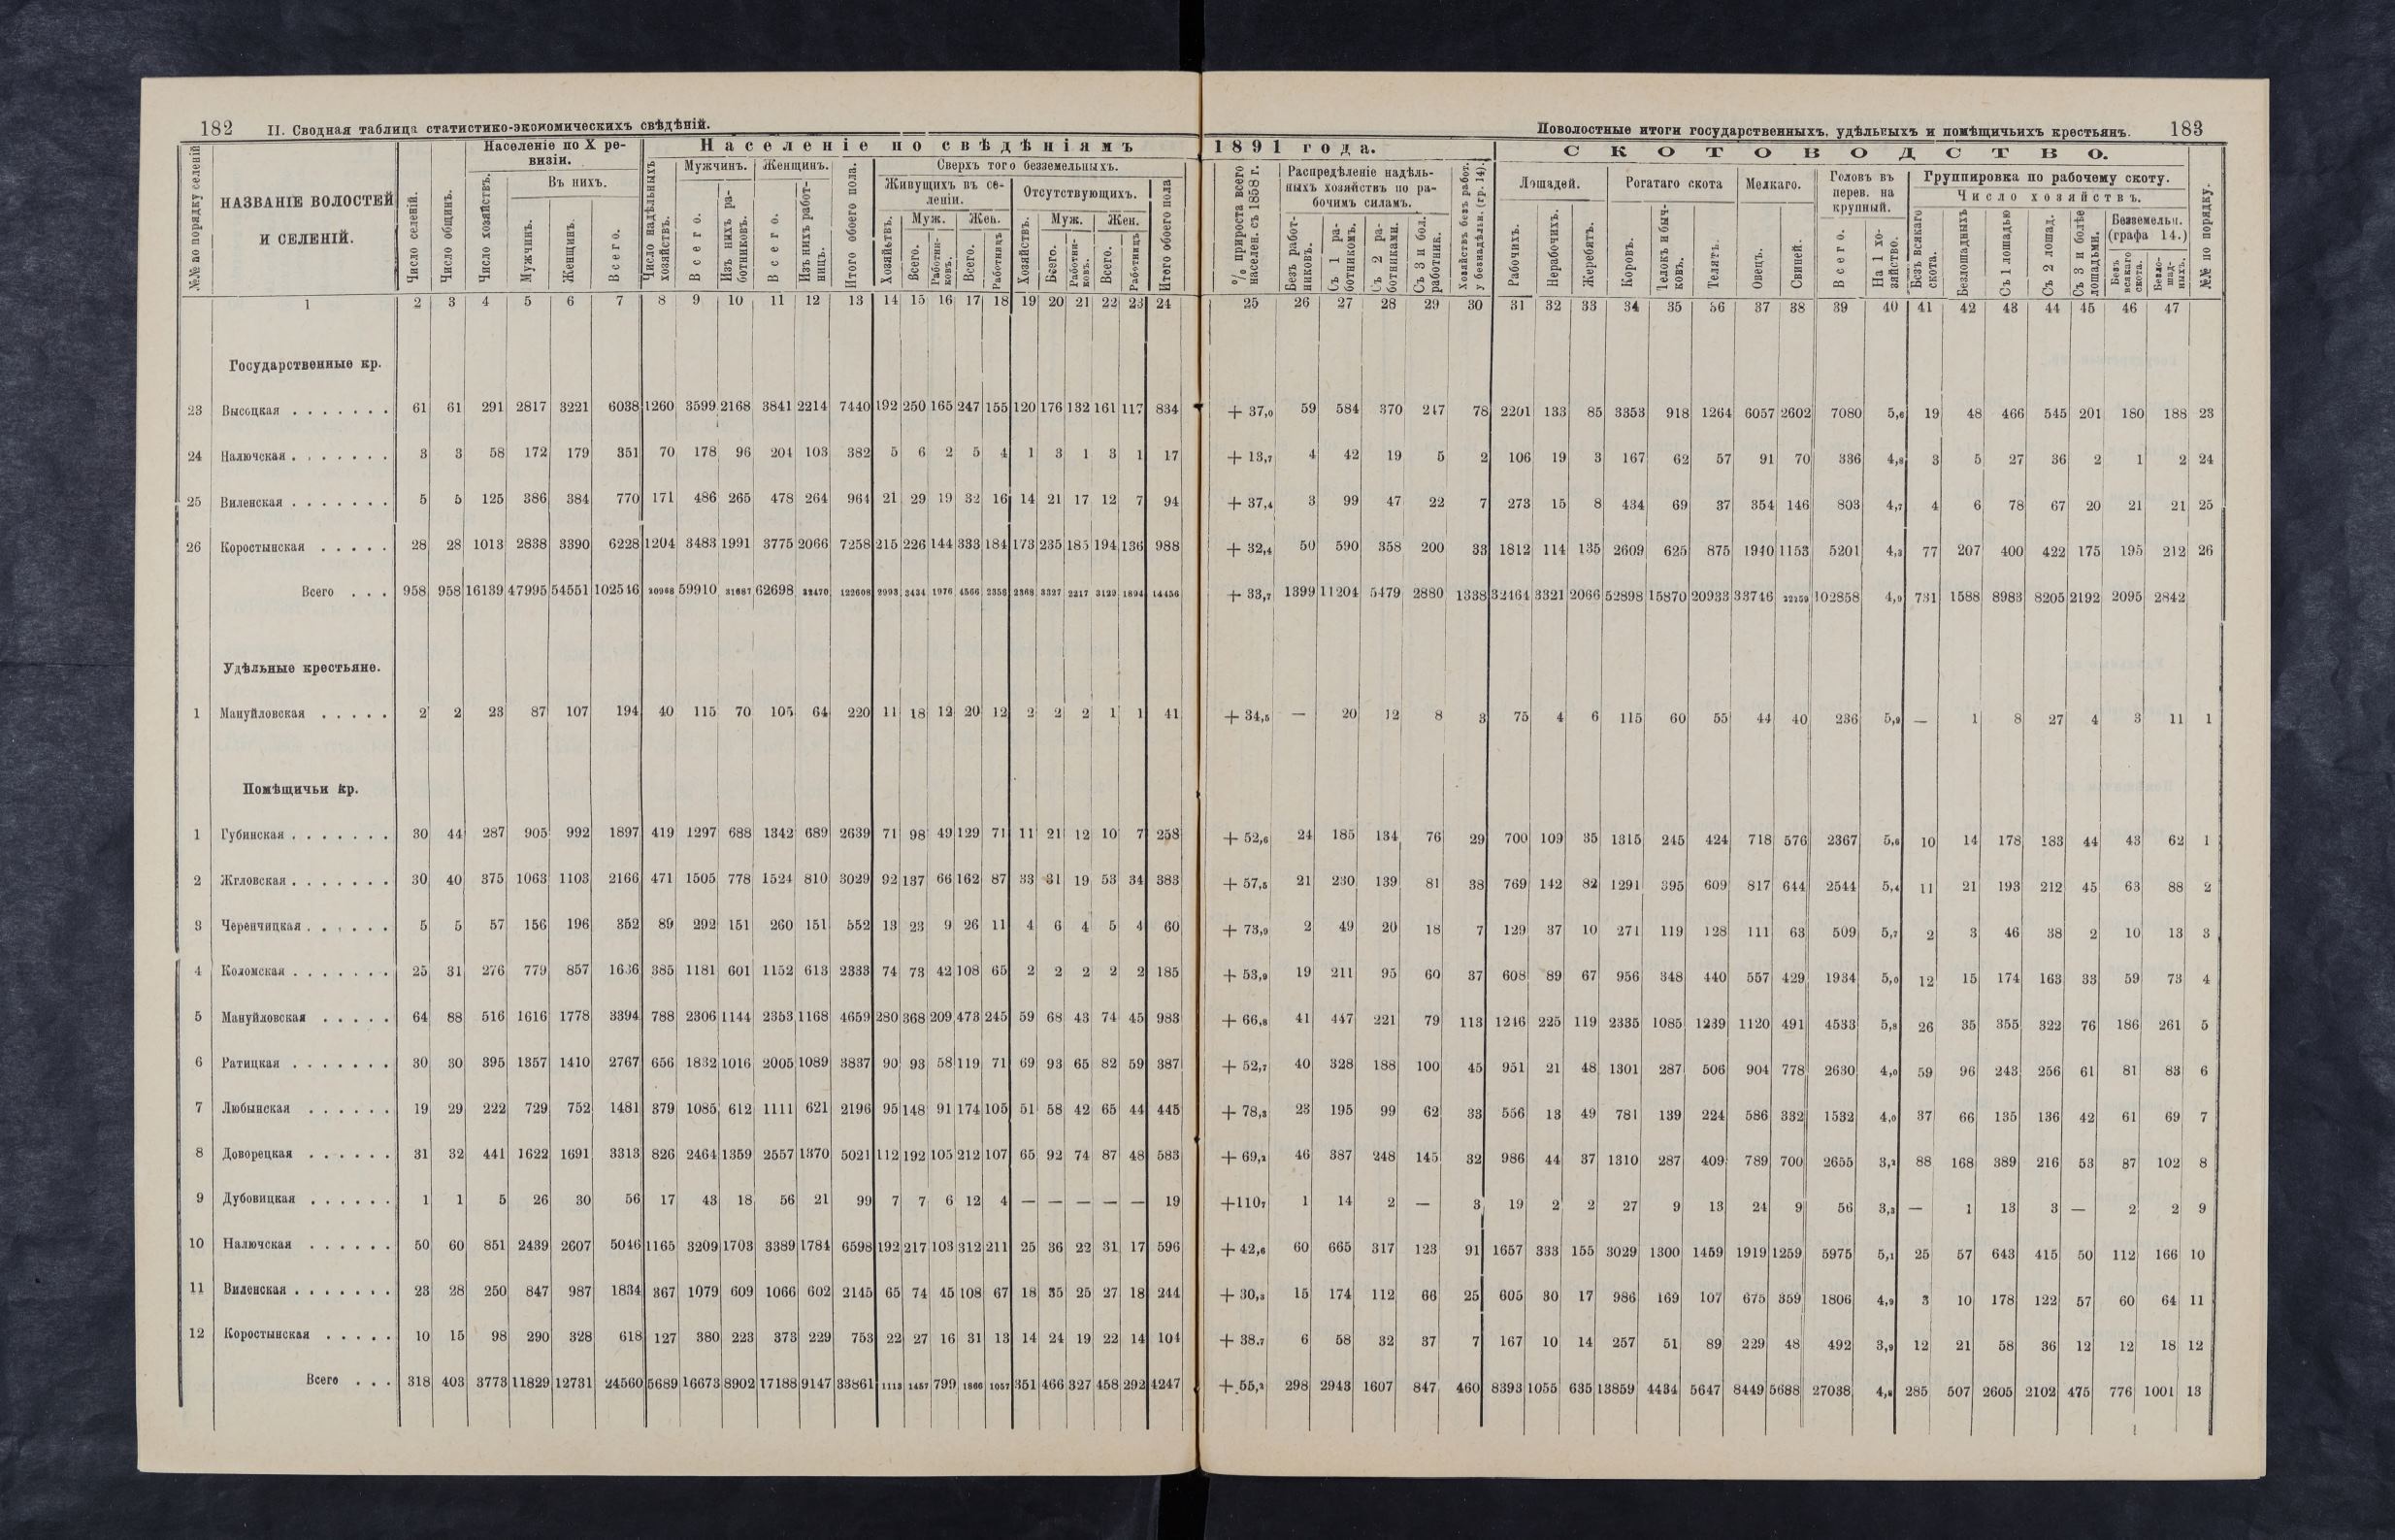 182 II. Сводная таблица статистико-экономическихъ свѣдѣній.
Поволостные итоги государственныхъ, удѣльныхъ и помѣщичьихъ крестьянъ. 183
№№ по порядку селеній
НАЗВАНІЕ ВОЛОСТЕЙ И СЕЛЕНІЙ.
Число селеній.
Число общинъ.
Населеніе по X ревизіи.
Число хозяйствъ.
Въ нихъ.
Мужчинъ.
Женщинъ.
Всего.
Населеніе по свѣдѣніямъ 1891 года.
Число надѣльныхъ хозяйствъ.
Мужчинъ.
Всего.
Изъ нихъ работниковъ.
Женщинъ.
Всего.
Изъ нихъ работницъ.
Итого обоего пола.
Сверхъ того безземельныхъ.
Живущихъ въ селеніи.
Хозяйствъ.
Муж.
Всего.
Работниковъ.
Жен.
Всего.
Работницъ
Отсутствующихъ.
Хозяйствъ.
Муж.
Всего.
Работниковъ.
Жен.
Всего.
Работницъ
Итого обоего пола
% прироста всего населен. съ 1858 г.
Распредѣленіе надѣльныхъ хозяйствъ по рабочимъ силамъ.
Безъ работниковъ.
Съ 1 работникомъ.
Съ 2 работниками.
Съ 3 и бол. работник.
Хозяйствъ безъ работ. у безнадѣльн. (гр. 14).
СКОТОВОДСТВО.
Лошадей.
Рабочихъ.
Нерабочихъ.
Жеребятъ.
Рогатаго скота
Коровъ.
Телокъ и бычковъ.
Телятъ.
Мелкаго.
Овецъ.
Свиней.
Головъ въ перев. на крупный.
Всего.
На 1 хозяйство.
Группировка по рабочему скоту.
Число хозяйствъ.
Безъ всякаго скота.
Безлошадныхъ
Съ 1 лошадью
Съ 2 лошад.
Съ 3 и болѣе лошадьми.
Безземельн. (графа 14.)
Безъ всякаго скота.
Безлошадныхъ.
№№ по порядку.
1 2 3 4 5 6 7 8 9 10 11 12 13 14 15 16 17 18 19 20 21 22 23 24 25 26 27 28 29 30 31 32 33 34 35 36 37 38 39 40 41 42 43 44 45 46 47
Государственные кр.
23 Высоцкая . . . . . . . 61 61 291 2817 3221 6038 1260 3599 2168 3841 2214 7440 192 250 165 247 155 120 176 132 161 117 834 + 37,0 59 584 370 247 78 2201 133 85 3353 918 1264 6057 2602 7080 5,6 19 48 466 545 201 180 188 23
24 Налючская . . . . . . . 3 3 58 172 179 351 70 178 96 204 103 382 5 6 2 5 4 1 3 1 3 1 17 + 13,7 4 42 19 5 2 106 19 3 167 62 57 91 70 336 4,8 3 5 27 36 2 1 2 24
25 Виленская . . . . . . . 5 5 125 386 384 770 171 486 265 478 264 964 21 29 19 32 16 14 21 17 12 7 94 + 37,4 3 99 47 22 7 273 15 8 434 69 37 354 146 803 4,7 4 6 78 67 20 21 21 25
26 Коростынская . . . . . 28 28 1013 2838 3390 6228 1204 3483 1991 3775 2066 7258 215 226 144 333 184 173 235 185 194 136 988 + 32,4 50 590 358 200 33 1812 114 135 2609 625 875 1940 1153 5201 4,3 77 207 400 422 175 195 212 26
Всего . . . 958 958 16139 47995 54551 102546 20968 59910 31687 62698 32470 122608 2993 3434 1976 4566 2356 2368 3327 2217 3129 1894 14456 + 33,7 1399 11204 5479 2880 1338 32464 3321 2066 52898 15870 20933 33746 22159 102858 4,9 731 1588 8983 8205 2192 2095 2842
Удѣльные крестьяне.
1 Мануйловская . . . . . 2 2 23 87 107 194 40 115 70 105 64 220 11 18 12 20 12 2 2 2 1 1 41 + 34,5 — 20 12 8 3 75 4 6 115 60 55 44 40 236 5,9 — 1 8 27 4 3 11 1
Помѣщичьи кр.
1 Губинская . . . . . . . 30 44 287 905 992 1897 419 1297 688 1342 689 2639 71 98 49 129 71 11 21 12 10 7 258 + 52,6 24 185 134 76 29 700 109 35 1315 245 424 718 576 2367 5,6 10 14 178 183 44 43 62 1
2 Жгловская . . . . . . . 30 40 375 1063 1103 2166 471 1505 778 1524 810 3029 92 137 66 162 87 33 31 19 53 34 383 + 57,5 21 230 139 81 38 769 142 82 1291 395 609 817 644 2544 5,4 11 21 193 212 45 63 88 2
3 Черенчицкая . . . . . . 5 5 57 156 196 352 89 292 151 260 151 552 13 23 9 26 11 4 6 4 5 4 60 + 73,9 2 49 20 18 7 129 37 10 271 119 128 111 63 509 5,7 2 3 46 38 2 10 13 3
4 Коломская . . . . . . . 25 31 276 779 857 1636 385 1181 601 1152 613 2333 74 73 42 108 65 2 2 2 2 2 185 + 53,9 19 211 95 60 37 608 89 67 956 348 440 557 429 1934 5,0 12 15 174 163 33 59 73 4
5 Мануйловская . . . . . 64 88 516 1616 1778 3394 788 2306 1144 2353 1168 4659 280 368 209 473 245 59 68 43 74 45 983 + 66,8 41 447 221 79 113 1246 225 119 2335 1085 1239 1120 491 4533 5,8 26 35 355 322 76 186 261 5
6 Ратицкая . . . . . . . 30 30 395 1357 1410 2767 656 1832 1016 2005 1089 3837 90 93 58 119 71 69 93 65 82 59 387 + 52,7 40 328 188 100 45 951 21 48 1301 287 506 904 778 2630 4,0 59 96 243 256 61 81 83 6
7 Любынская . . . . . . 19 29 222 729 752 1481 379 1085 612 1111 621 2196 95 148 91 174 105 51 58 42 65 44 445 + 78,3 23 195 99 62 33 556 13 49 781 139 224 586 332 1532 4,0 37 66 135 136 42 61 69 7
8 Доворецкая . . . . . . 31 32 441 1622 1691 3313 826 2464 1359 2557 1370 5021 112 192 105 212 107 65 92 74 87 48 583 + 69,2 46 387 248 145 32 986 44 37 1310 287 409 789 700 2655 3,2 88 168 389 216 53 87 102 8
9 Дубовицкая . . . . . . 1 1 5 26 30 56 17 43 18 56 21 99 7 7 6 12 4 — — — — — 19 +1107 1 14 2 — 3 19 2 2 27 9 13 24 9 56 3,3 — 1 13 3 — 2 2 9
10 Налючская . . . . . . 50 60 851 2439 2607 5046 1165 3209 1703 3389 1784 6598 192 217 103 312 211 25 36 22 31 17 596 + 42,6 60 665 317 123 91 1657 333 155 3029 1300 1459 1919 1259 5975 5,1 25 57 643 415 50 112 166 10
11 Виленская . . . . . . . 23 28 250 847 987 1834 367 1079 609 1066 602 2145 65 74 45 108 67 18 35 25 27 18 244 + 30,3 15 174 112 66 25 605 30 17 986 169 107 675 359 1806 4,9 3 10 178 122 57 60 64 11
12 Коростынская . . . . . 10 15 98 290 328 618 127 380 223 373 229 753 22 27 16 31 13 14 24 19 22 14 104 + 38.7 6 58 32 37 7 167 10 14 257 51 89 229 48 492 3,9 12 21 58 36 12 12 18 12
Всего . . . 318 403 3773 11829 12731 24560 5689 16673 8902 17188 9147 33861 1113 1457 799 1866 1057 351 466 327 458 292 4247 + 55,3 298 2943 1607 847 460 8393 1055 635 13859 4434 5647 8449 5688 27038 4,8 285 507 2605 2102 475 776 1001 13